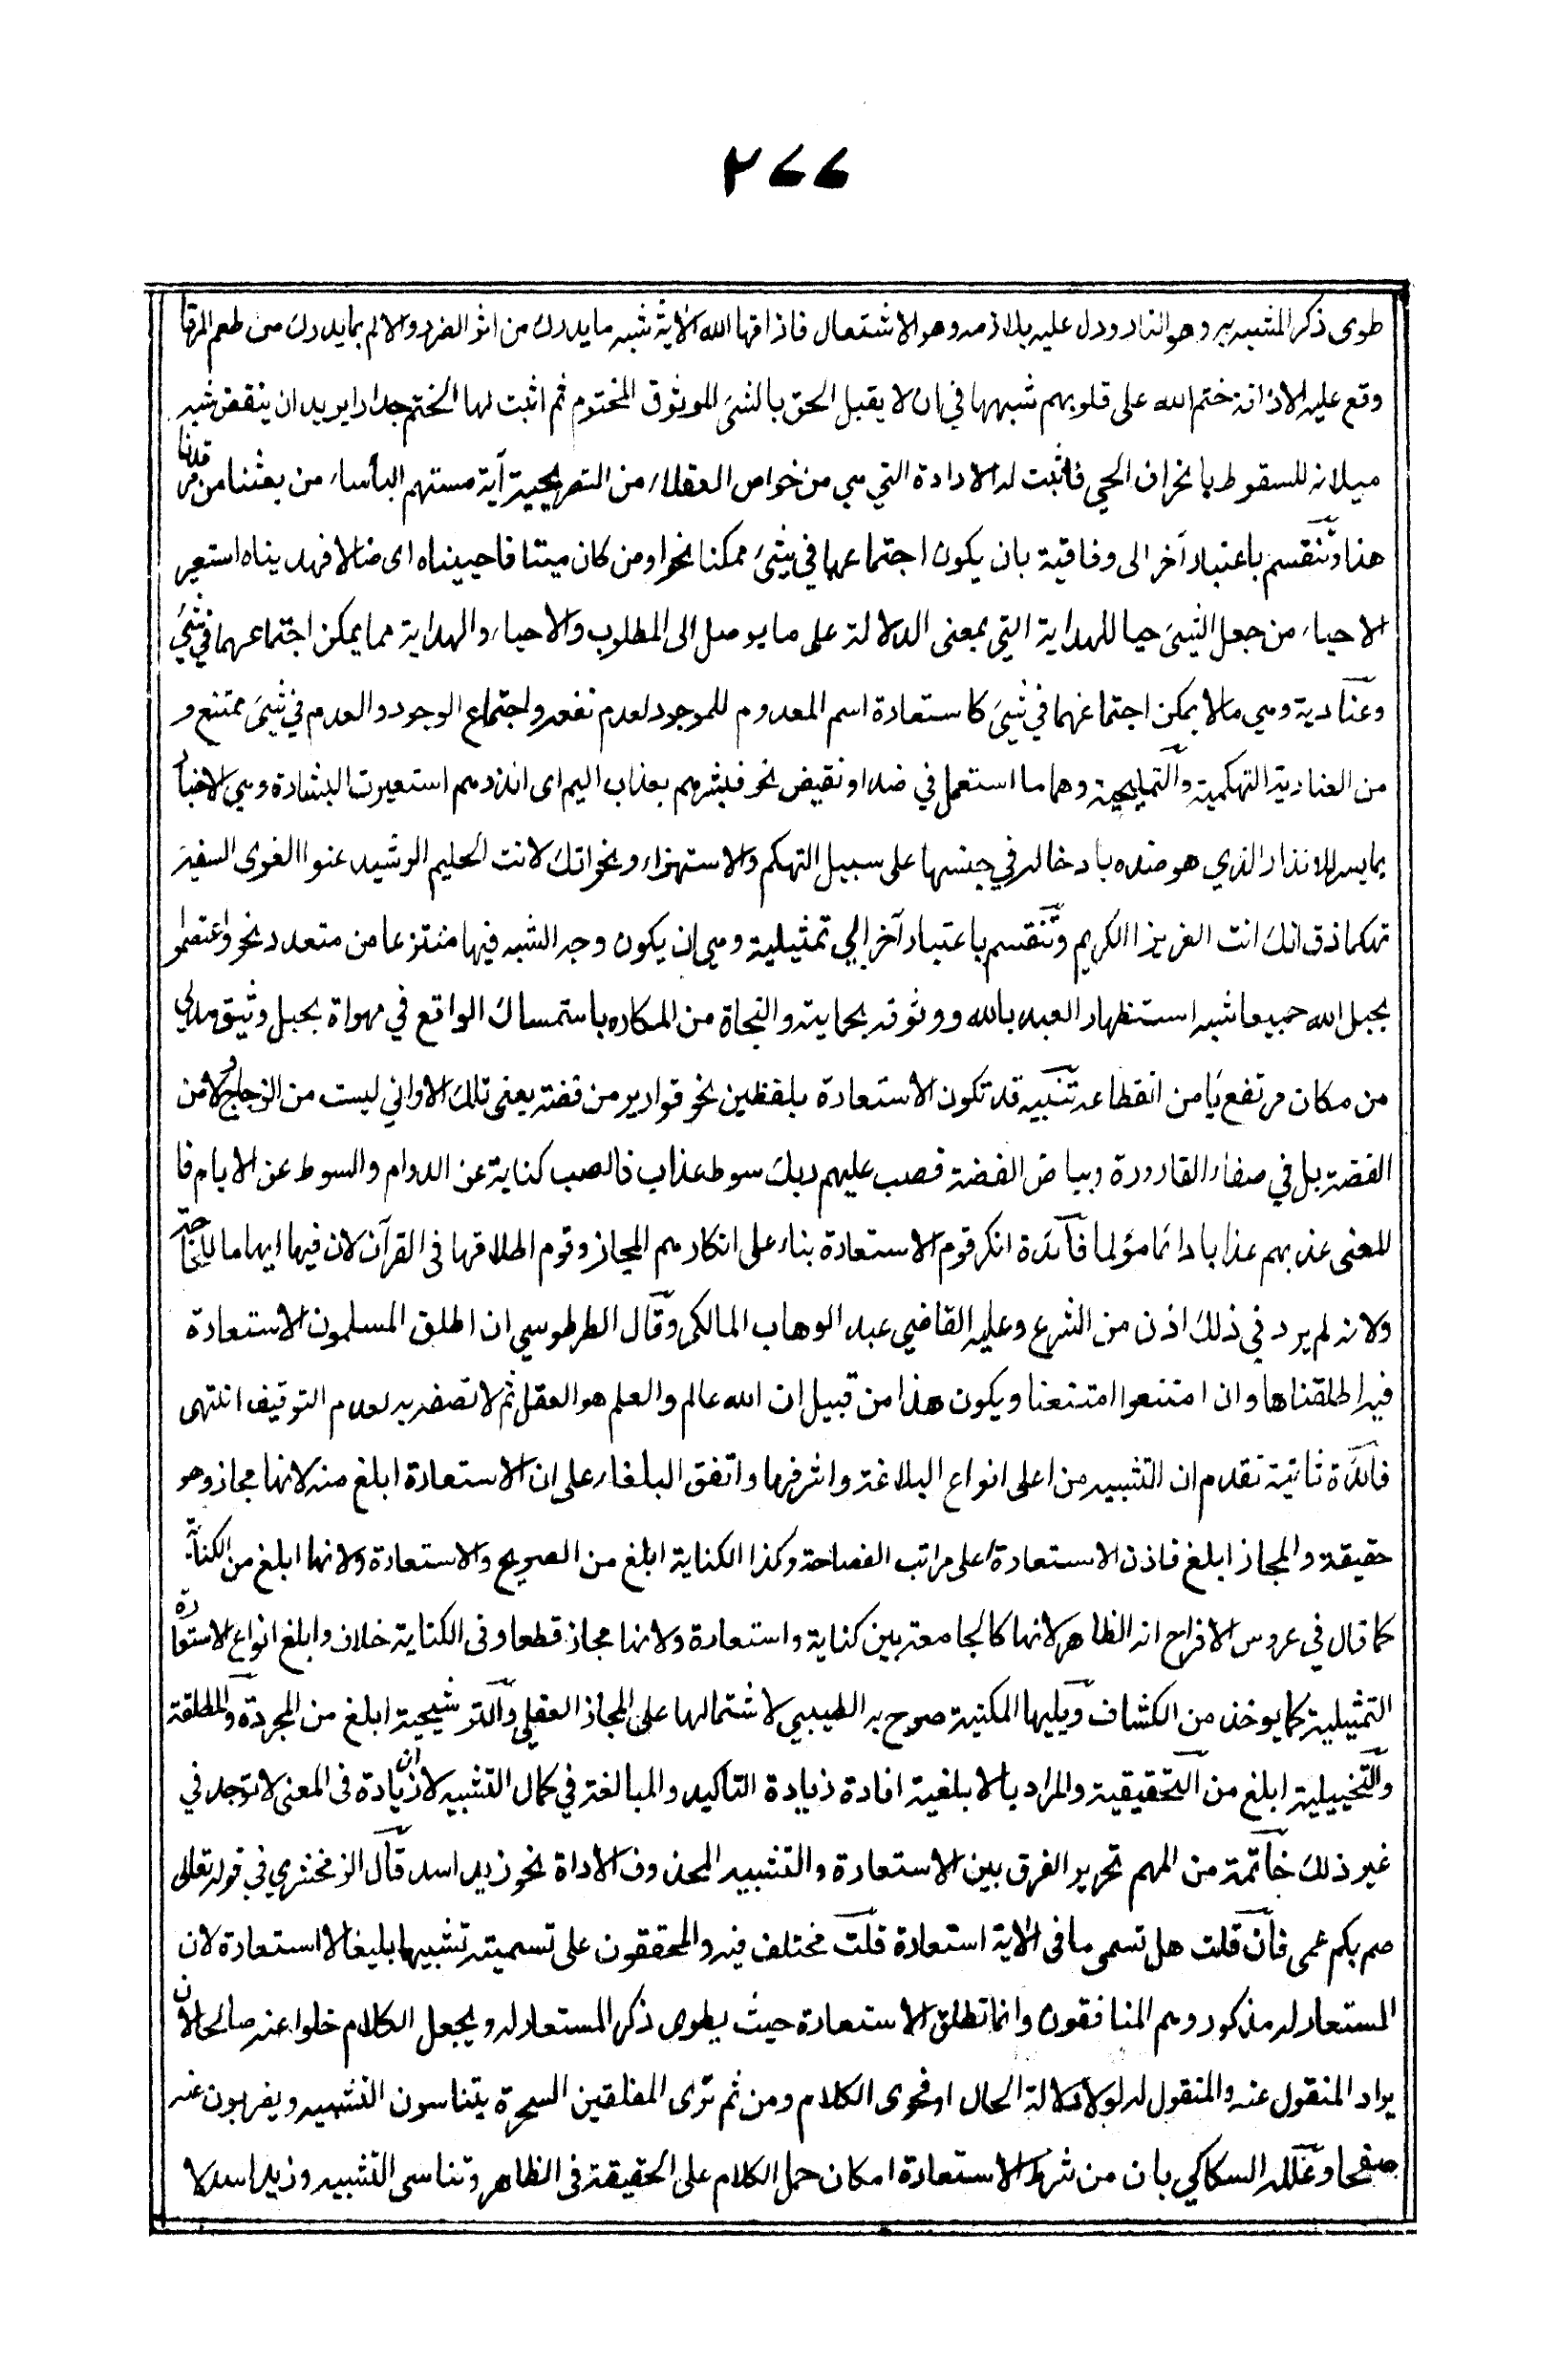 ٢٦٦
طوى ذكر المشبه به وهو النار ودل عليه بلازمه وهو الاشتعال فاذاقها الله الآية شبه ما يدرك من اثر الضرر والالم بما يدرك من طعم المر فا
وقع عليه الاذاقة ختم الله على قلوبهم شبهها في ان لا يقبل الحق بالشئ الموثوق المختوم ثم اثبت لها الختم جدارا يريد ان ينقض شبه
ميلانه للسقوط بانحراف الحي فاثبت له الارادة التي هي من خواص العقلاء من التصريحية آية مستهم البأساء من بعثنا من مرقدنا
هذا وتنقسم باعتبار آخر الى وفاقية بان يكون اجتماعهما في شئ ممكنا نحو اومن كان ميتا فاحييناه اى ضالا فهديناه استعير
الاحياء من جعل الشئ حيا للهداية التي بمعنى الدلالة على ما يوصل الى المطلوب والاحياء والهداية مما يمكن اجتماعهما في شئ
وعنادية وهي مالا يمكن اجتماعهما في شئ كاستعارة اسم المعدوم للموجود لعدم نفعه واجتماع الوجود والعدم في شئ ممتنع و
من العنادية التهكمية والتمليحية وهما ما استعمل في ضد او نقيض نحو فبشرهم بعذاب اليم اى انذرهم استعيرت البشارة وهي الاخبار
بما يسر للانذار الذي هو ضده بادخاله في جنسها على سبيل التهكم والاستهزاء ونحو انك لانت الحليم الرشيد عنوا الغوى السفيه
تهكما ذق انك انت العزيز الكريم وتنقسم باعتبار آخر الى تمثيلية وهي ان يكون وجه الشبه فيها منتزعا من متعدد نحو واعتصموا
بحبل الله جميعا شبه استظهار العبد بالله ووثوقه بحمايته والنجاة من المكاره باستمساك الواقع في مهواة بحبل وثيق مدلى
من مكان مرتفع يأمن انقطاعه تنبيه قد تكون الاستعارة بلفظين نحو قوارير من فضة يعنى تلك الاواني ليست من الزجاج ولا من
الفضة بل في صفاء القارورة وبياض الفضة فصب عليهم ربك سوط عذاب فالصب كناية عن الدوام والسوط عن الايلام فا
لمعنى عذبهم عذابا دائما مؤلما فائدة انكر قوم الاستعارة بناء على انكارهم المجاز وقوم اطلاقها في القرآن لان فيها ايهاما للحاجة
ولانه لم يرد في ذلك اذن من الشرع وعليه القاضي عبد الوهاب المالكى وقال الطرطوسي ان اطلق المسلمون الاستعارة
فيه اطلقناها وان امتنعوا امتنعنا ويكون هذا من قبيل ان الله عالم والعلم هو العقل ثم لا تصفه به لعدم التوقيف انتهى
فائدة ثانية تقدم ان التشبيه من اعلى انواع البلاغة واشرفها واتفق البلغاء على ان الاستعارة ابلغ منه لانها مجاز وهو
حقيقة والمجاز ابلغ فاذن الاستعارة اعلى مراتب الفصاحة وكذا الكناية ابلغ من الصريح والاستعارة ولانها ابلغ من الكناية
كما قال في عروس الافراح انه الظاهر لانها كالجامعة بين كناية واستعارة ولانها مجاز قطعا وفى الكناية خلاف وابلغ انواع الاستعارة
التمثيلية كما يوخذ من الكشاف ويليها المكنية صرح به الطيبي لاشتمالها على المجاز العقلي والترشيحية ابلغ من المجردة والمطلقة
والتخييلية ابلغ من التحقيقية والمراد بالابلغية افادة زيادة التاكيد والمبالغة في كمال التشبيه لا ان زيادة فى المعنى لا توجد في
غير ذلك خاتمة من المهم تحرير الفرق بين الاستعارة والتشبيه المحذوف الاداة نحو زيد اسد قال الزمخشري في قوله تعالى
صم بكم عمى فان قلت هل تسمى ما فى الآية استعارة قلت مختلف فيه والمحققون على تسميته تشبيها بليغا لا استعارة لان
المستعار له مذكور وهم المنافقون وانما تطلق الاستعارة حيث يطوى ذكر المستعار له ويجعل الكلام خلوا عنه صالحا لان
يراد المنقول عنه والمنقول له لولا دلالة الحال او فحوى الكلام ومن ثم ترى المفلقين السحرة يتناسون التشبيه ويضربون عنه
صفحا وعلله السكاكي بان من شرط الاستعارة امكان حمل الكلام على الحقيقة فى الظاهر وتناسى التشبيه وزيد اسد لا